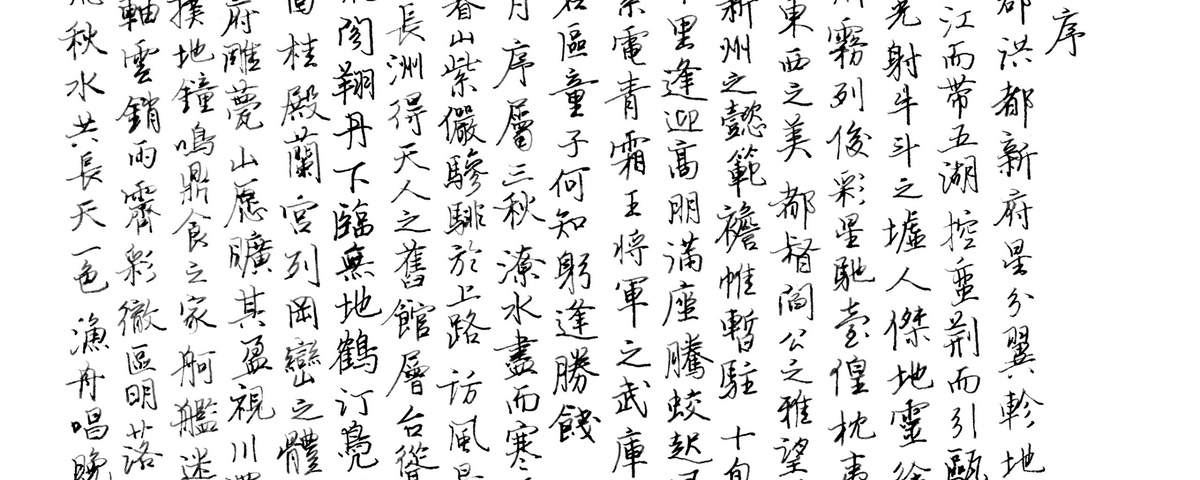 序
洪都新府星分翼軫地
江而帶五湖控蠻荆而引甌
光射牛斗之墟人傑地靈徐
霧列俊彩星馳臺隍枕夷
東西之美都督閻公之雅望
新州之懿範襜帷暫駐十旬
里逢迎高朋滿座騰蛟起
紫電青霜王將軍之武庫
區童子何知躬逢勝餞
月序屬三秋潦水盡而寒
暮山紫儼驂騑於上路訪風
長洲得天人之舊館層台聳
閣翔丹下臨無地鶴汀鳧
桂殿蘭宮列岡巒之體
府雕甍山愿曠其盈視川
撲地鐘鳴鼎食之家舸艦迷
軸雲銷雨霽彩徹區明落
秋水共長天一色漁舟唱晚